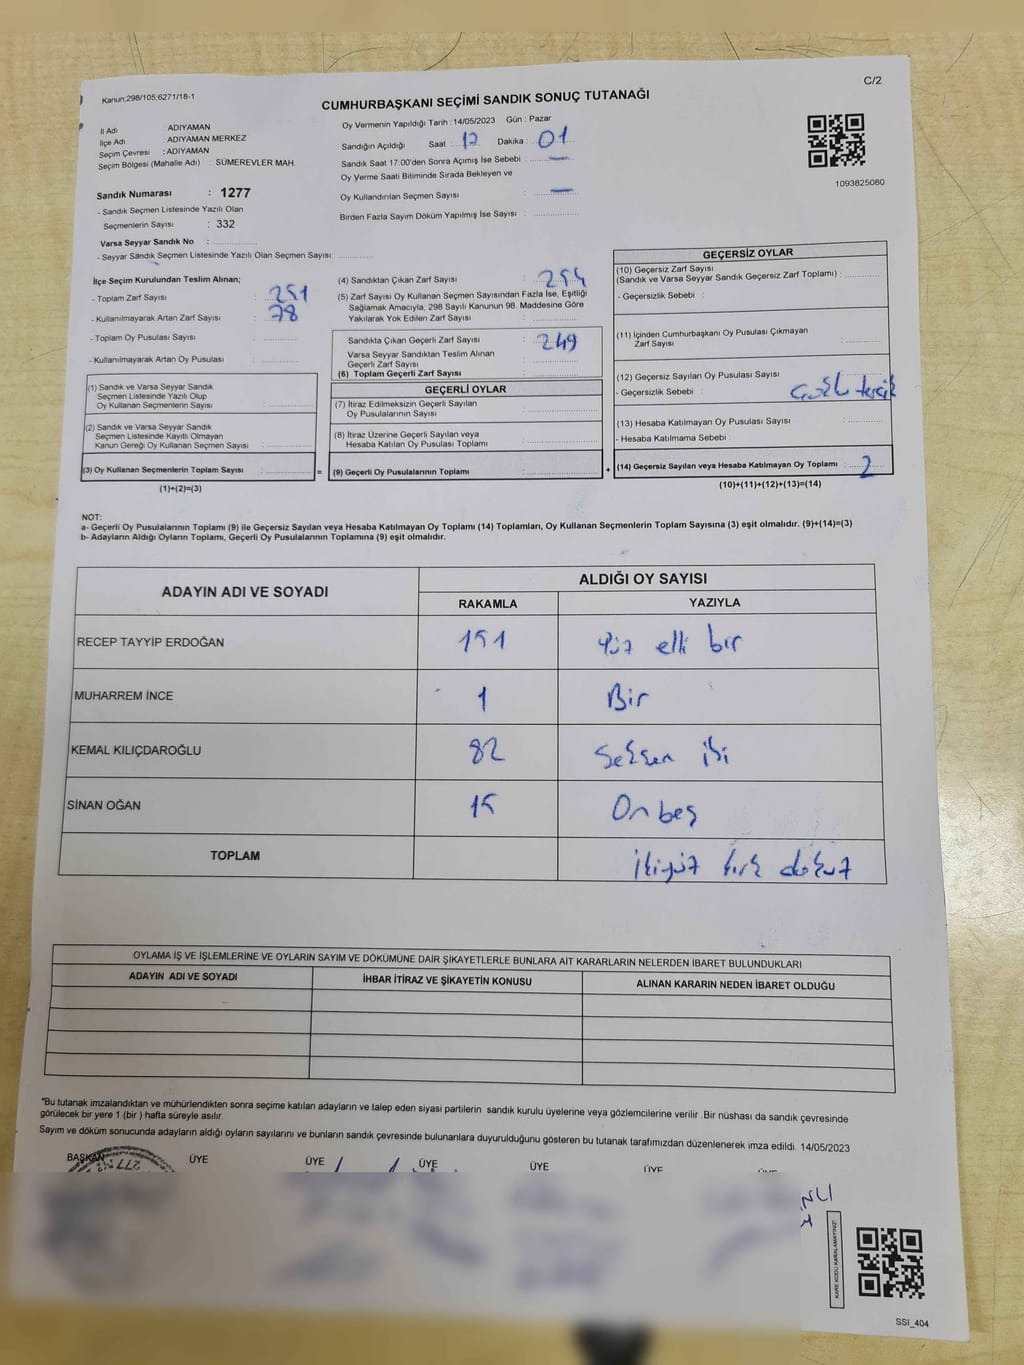 C/2
Kanun,298/105;6271/18-1
CUMHURBAŞKANI SEÇİMİ SANDIK SONUÇ TUTANAĞI
İl Adı : ADIYAMAN
İlçe Adı : ADIYAMAN MERKEZ
Seçim Çevresi : ADIYAMAN
Seçim Bölgesi (Mahalle Adı) : SÜMEREVLER MAH.
Sandık Numarası : 1277
- Sandık Seçmen Listesinde Yazılı Olan
Seçmenlerin Sayısı : 332
Varsa Seyyar Sandık No :
- Seyyar Sandık Seçmen Listesinde Yazılı Olan Seçmen Sayısı:
Oy Vermenin Yapıldığı Tarih : 14/05/2023 Gün : Pazar
Sandığın Açıldığı Saat : 17 Dakika : 01
Sandık Saat 17:00'den Sonra Açımış İse Sebebi :
Oy Verme Saati Bitiminde Sırada Bekleyen ve
Oy Kullandırılan Seçmen Sayısı :
Birden Fazla Sayım Döküm Yapılmış İse Sayısı :
1093825080
İlçe Seçim Kurulundan Teslim Alınan;
- Toplam Zarf Sayısı : 251
- Kullanılmayarak Artan Zarf Sayısı : 78
- Toplam Oy Pusulası Sayısı :
- Kullanılmayarak Artan Oy Pusulası :
(1) Sandık ve Varsa Seyyar Sandık
Seçmen Listesinde Yazılı Olup
Oy Kullanan Seçmenlerin Sayısı :
(2) Sandık ve Varsa Seyyar Sandık
Seçmen Listesinde Kayıtlı Olmayan
Kanun Gereği Oy Kullanan Seçmen Sayısı :
(3) Oy Kullanan Seçmenlerin Toplam Sayısı :
(1)+(2)=(3)
(4) Sandıktan Çıkan Zarf Sayısı : 254
(5) Zarf Sayısı Oy Kullanan Seçmen Sayısından Fazla İse, Eşitliği
Sağlamak Amacıyla, 298 Sayılı Kanunun 98. Maddesine Göre
Yakılarak Yok Edilen Zarf Sayısı :
Sandıkta Çıkan Geçerli Zarf Sayısı : 249
Varsa Seyyar Sandıktan Teslim Alınan
Geçerli Zarf Sayısı :
(6) Toplam Geçerli Zarf Sayısı :
GEÇERLİ OYLAR
(7) İtiraz Edilmeksizin Geçerli Sayılan
Oy Pusulalarının Sayısı :
(8) İtiraz Üzerine Geçerli Sayılan veya
Hesaba Katılan Oy Pusulası Toplamı :
= (9) Geçerli Oy Pusulalarının Toplamı :
GEÇERSİZ OYLAR
(10) Geçersiz Zarf Sayısı
(Sandık ve Varsa Seyyar Sandık Geçersiz Zarf Toplamı) :
- Geçersizlik Sebebi :
(11) İçinden Cumhurbaşkanı Oy Pusulası Çıkmayan
Zarf Sayısı :
(12) Geçersiz Sayılan Oy Pusulası Sayısı :
- Geçersizlik Sebebi : Çoklu tercih
(13) Hesaba Katılmayan Oy Pusulası Sayısı :
- Hesaba Katılmama Sebebi :
+ (14) Geçersiz Sayılan veya Hesaba Katılmayan Oy Toplamı : 2
(10)+(11)+(12)+(13)=(14)
NOT:
a- Geçerli Oy Pusulalarının Toplamı (9) ile Geçersiz Sayılan veya Hesaba Katılmayan Oy Toplamı (14) Toplamları, Oy Kullanan Seçmenlerin Toplam Sayısına (3) eşit olmalıdır. (9)+(14)=(3)
b- Adayların Aldığı Oyların Toplamı, Geçerli Oy Pusulalarının Toplamına (9) eşit olmalıdır.
ADAYIN ADI VE SOYADI
ALDIĞI OY SAYISI
RAKAMLA YAZIYLA
RECEP TAYYİP ERDOĞAN 151 Yüz elli bir
MUHARREM İNCE 1 Bir
KEMAL KILIÇDAROĞLU 82 Seksen iki
SİNAN OĞAN 15 On beş
TOPLAM İkiyüz kırk dokuz
OYLAMA İŞ VE İŞLEMLERİNE VE OYLARIN SAYIM VE DÖKÜMÜNE DAİR ŞİKAYETLERLE BUNLARA AİT KARARLARIN NELERDEN İBARET BULUNDUKLARI
ADAYIN ADI VE SOYADI İHBAR İTİRAZ VE ŞİKAYETİN KONUSU ALINAN KARARIN NEDEN İBARET OLDUĞU
*Bu tutanak imzalandıktan ve mühürlendikten sonra seçime katılan adayların ve talep eden siyasi partilerin sandık kurulu üyelerine veya gözlemcilerine verilir .Bir nüshası da sandık çevresinde
görülecek bir yere 1 (bir ) hafta süreyle asılır.
Sayım ve döküm sonucunda adayların aldığı oyların sayılarını ve bunların sandık çevresinde bulunanlara duyurulduğunu gösteren bu tutanak tarafımızdan düzenlenerek imza edildi. 14/05/2023
BAŞKAN ÜYE ÜYE ÜYE ÜYE ÜYE
KARE KODU KARALAMAYINIZ!
SSI_404